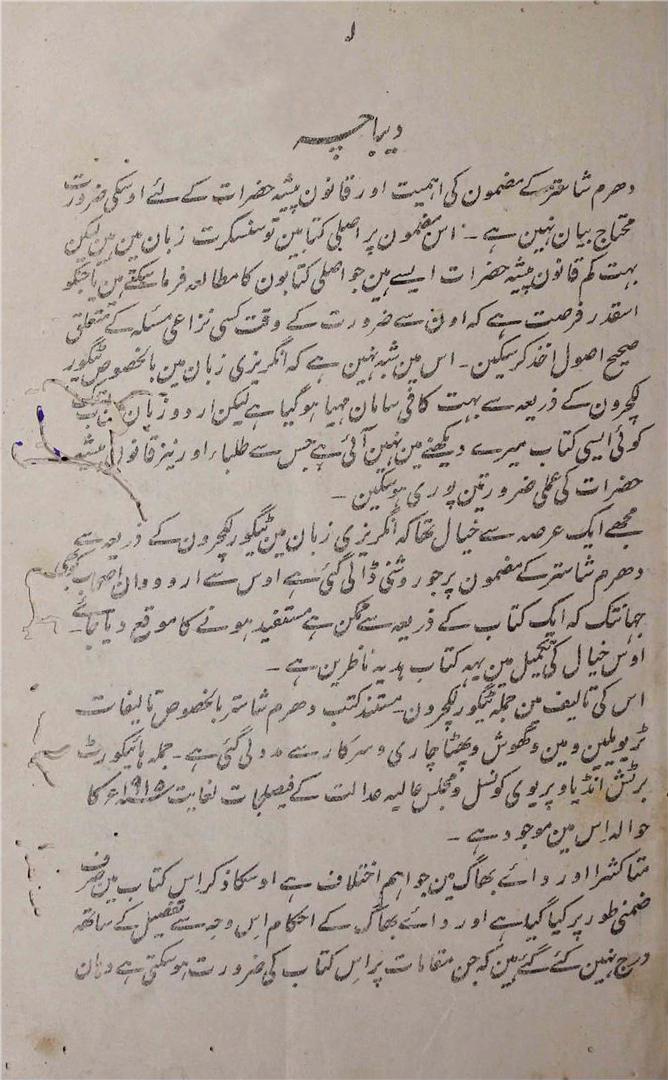 ۱
دیباچہ
دھرم شاستر کے مضمون کی اہمیت اور قانون پیشہ حضرات کے لئے اوسکی ضرورت
محتاج بیان نہین ہے ۔ اس مضمون پر اصلی کتابین تو سنسکرت زبان مین ہین لیکن
بہت کم قانون پیشہ حضرات ایسے ہین جو اصلی کتابون کا مطالعہ فرما سکتے ہین یا جنکو
اسقدر فرصت ہے کہ اون سے ضرورت کے وقت کسی نزاعی مسئلہ کے متعلق
صحیح اصول اخذ کر سکین ۔ اس مین شبہ نہین ہے کہ انگریزی زبان مین بالخصوص ٹیگور
لکچرون کے ذریعہ سے بہت کافی سامان مہیا ہو گیا ہے لیکن اردو زبان مین ابتک
کوئی ایسی کتاب میرے دیکھنے مین نہین آئی ہے جس سے طلباء اور نیز قانون پیشہ
حضرات کی عملی ضرورتین پوری ہو سکین ۔
مجھے ایک عرصہ سے خیال تھا کہ انگریزی زبان مین ٹیگور لکچرون کے ذریعہ سے
دھرم شاستر کے مضمون پر جو روشنی ڈالی گئی ہے اوس سے اردو دان اصحاب کو بھی
جہانتک کہ ایک کتاب کے ذریعہ سے ممکن ہے مستفید ہونے کا موقع دیا جائے ۔
اوس خیال کی تکمیل مین یہہ کتاب ہدیہ ناظرین ہے ۔
اس کی تالیف مین جملہ ٹیگور لکچرون ۔ مستند کتب دھرم شاستر بالخصوص تالیفات
ٹریولین و مین و گھوش و بھٹاچاری و سرکار سے مدد لی گئی ہے ۔ جملہ ہائیکورٹ
برٹش انڈیا و پریوی کونسل و مجلس عالیہ عدالت کے فیصلجات لغایت ۱۹۱۵ء کا
حوالہ اِس مین موجود ہے ۔
متاکشرا اور دائے بھاگ مین جو اہم اختلاف ہے اوسکا ذکر اِس کتاب مین صرف
ضمنی طور پر کیا گیا ہے اور دائے بھاگ کے احکام اِس وجہ سے تفصیل کے ساتھہ
درج نہین کئے گئے ہین کہ جن مقامات پر اِس کتاب کی ضرورت ہو سکتی ہے وہان